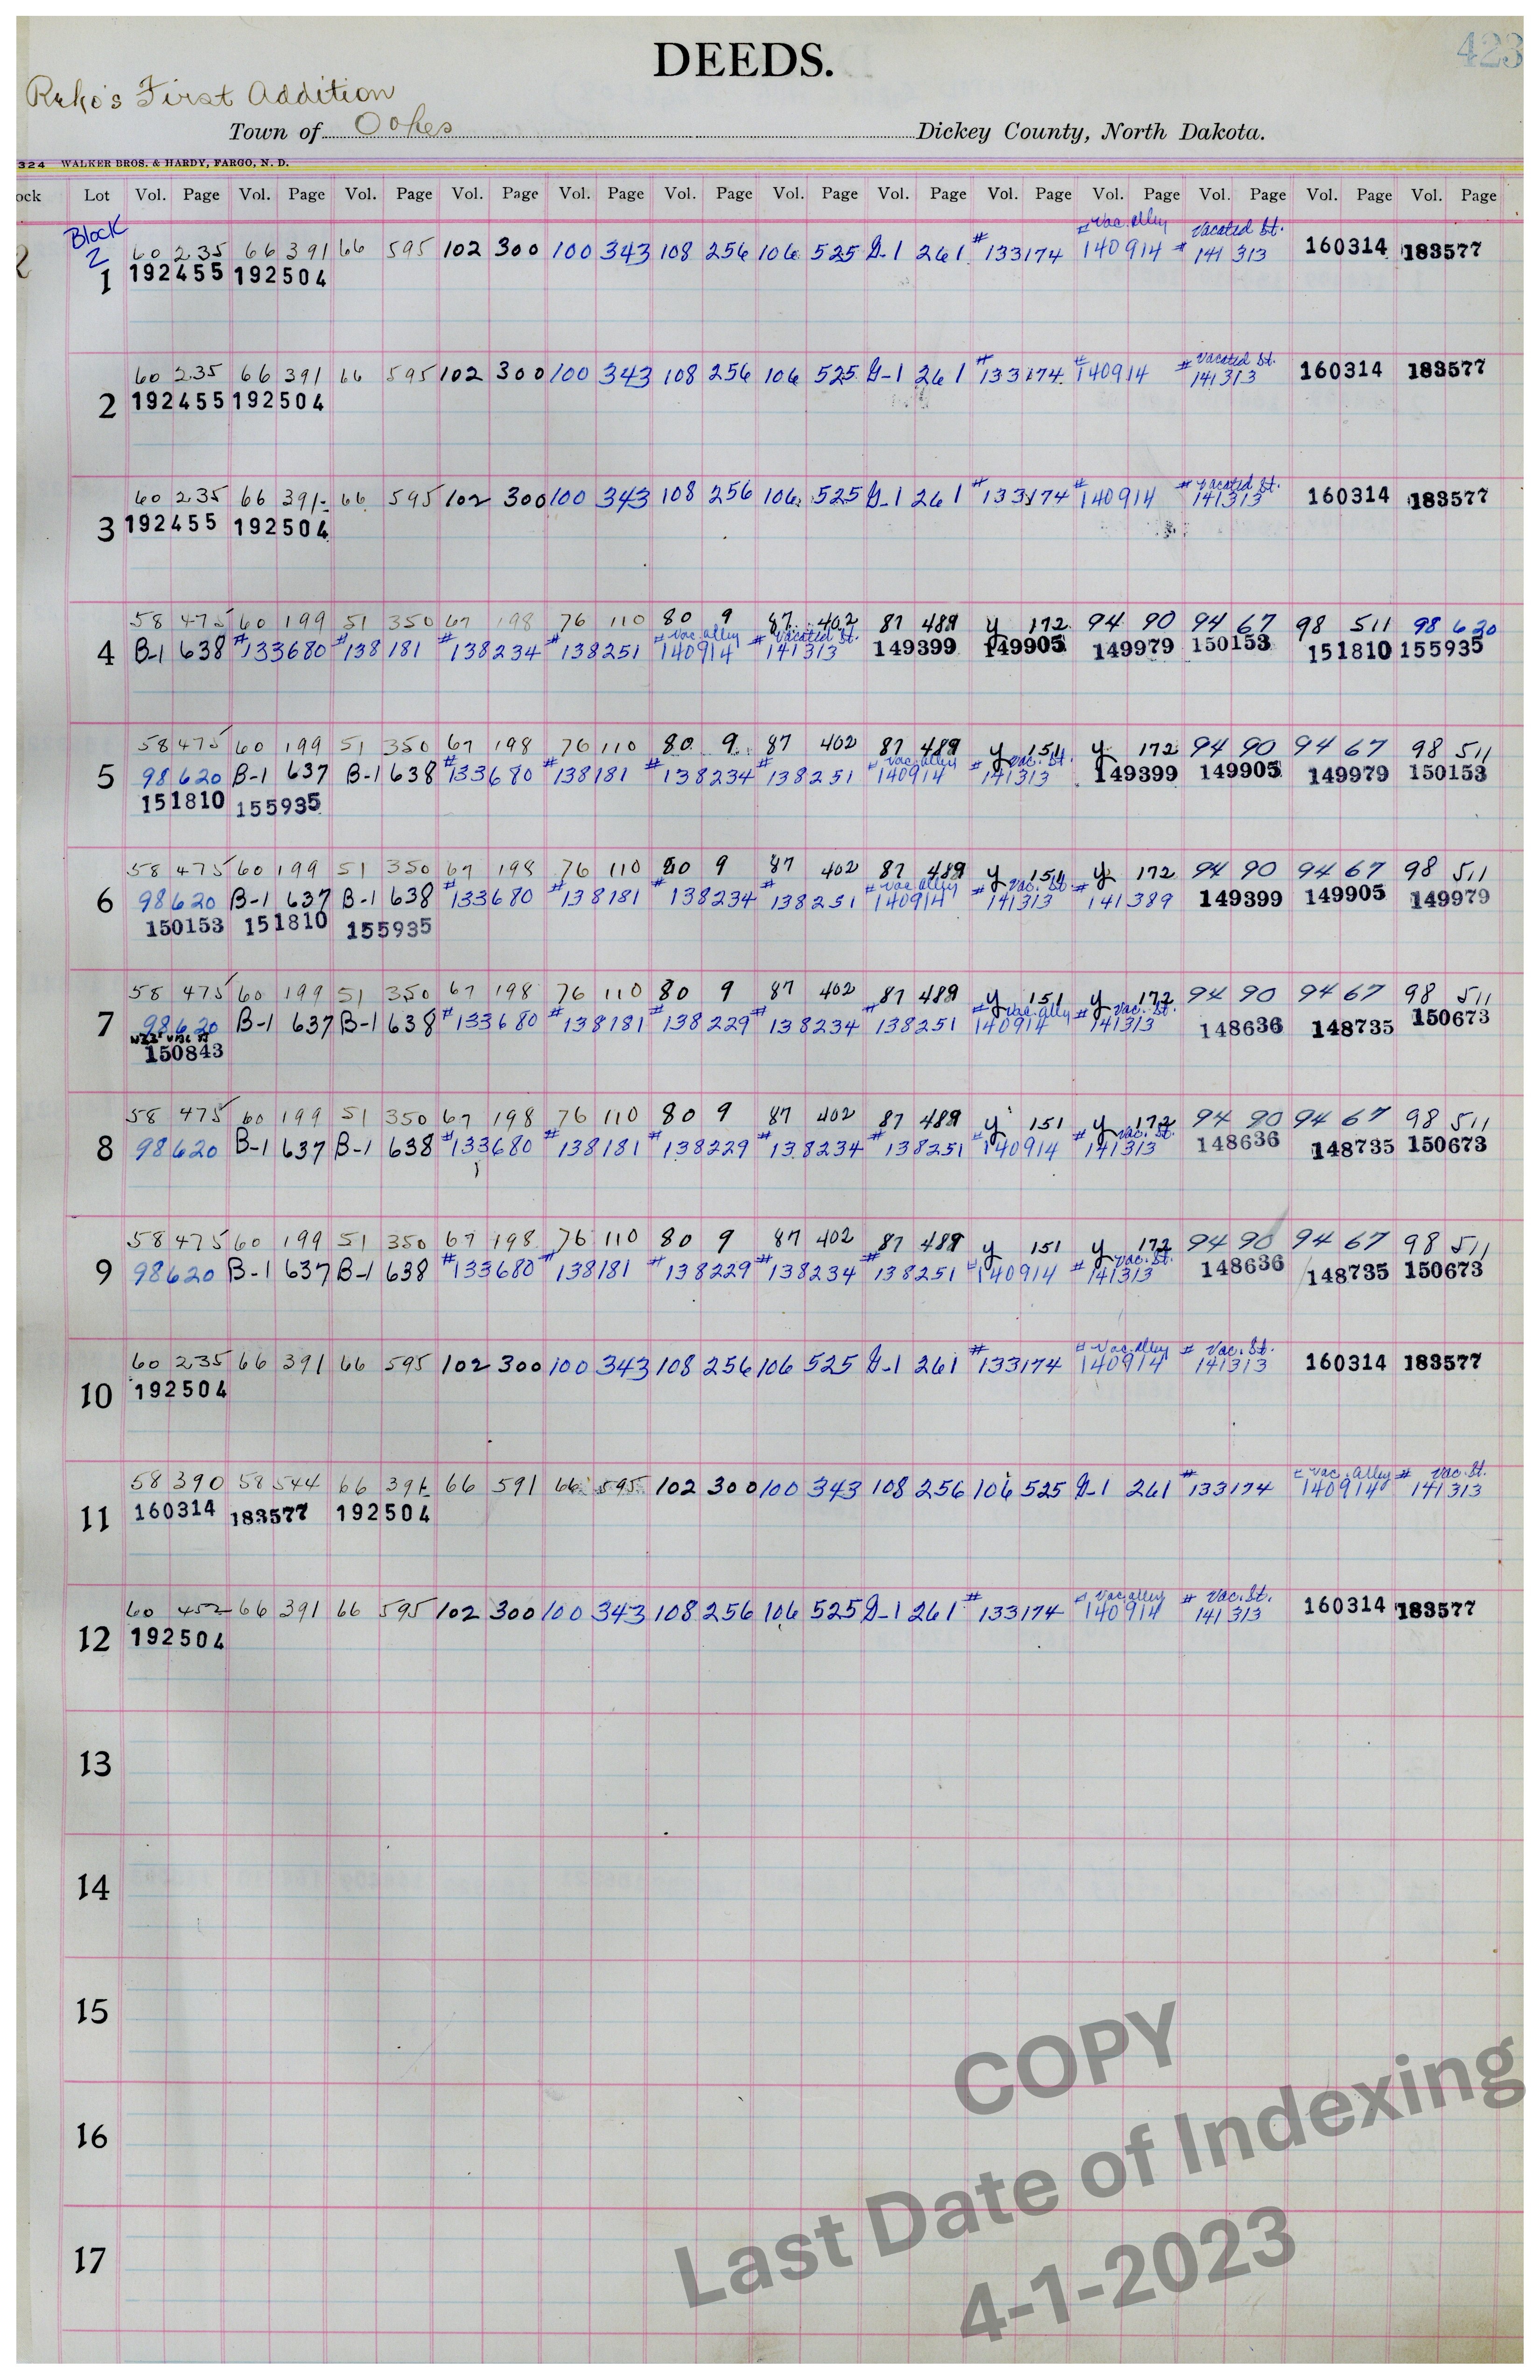 DEEDS.
423
First Addition
Town of Oakes Dickey County, North Dakota.
324 WALKER BROS. & HARDY, FARGO, N. D.
ock Lot Vol. Page Vol. Page Vol. Page Vol. Page Vol. Page Vol. Page Vol. Page Vol. Page Vol. Page Vol. Page Vol. Page Vol. Page Vol. Page
Block # Vac. Alley Vacated St.
2 2 60 235 66 391 66 595 102 300 100 343 108 256 106 525 G-1 261 #133174 140914 # 141313 160314 183577
1 192455 192504
# Vacated St.
60 235 66 391 66 595 102 300 100 343 108 256 106 525 G-1 261 #133174 #140914 141313 160314 183577
2 192455 192504
# Vacated St.
60 235 66 391 66 595 102 300 100 343 108 256 106 525 G-1 261 #133174 #140914 141313 160314 183577
3 192455 192504
58 475 60 199 51 350 67 198 76 110 80 9 87 402 87 489 Y 172 94 90 94 67 98 511 98 620
# Vac. alley # Vacated St.
4 B-1 638 #133680 #138181 #138234 #138251 140914 141313 149399 149905 149979 150153 151810 155935
58 475 60 199 51 350 67 198 76 110 80 9 87 402 87 489 Y 151 Y 172 94 90 94 67 98 511
# Vac. alley # Vac. St.
5 98 620 B-1 637 B-1 638 #133680 #138181 #138234 #138251 140914 141313 149399 149905 149979 150153
151810 155935
58 475 60 199 51 350 67 198 76 110 80 9 87 402 87 489 Y 151 Y 172 94 90 94 67 98 511
# Vac. alley # Vac. St.
6 98 620 B-1 637 B-1 638 #133680 #138181 #138234 #138251 140914 141313 #141389 149399 149905 149979
150153 151810 155935
58 475 60 199 51 350 67 198 76 110 80 9 87 402 87 489 Y 151 Y 172 94 90 94 67 98 511
# Vac. alley # Vac. St.
7 98 620 B-1 637 B-1 638 #133680 #138181 #138229 #138234 #138251 140914 141313 148636 148735 150673
150843
58 475 60 199 51 350 67 198 76 110 80 9 87 402 87 489 Y 151 Y 172 94 90 94 67 98 511
# Vac. St.
8 98 620 B-1 637 B-1 638 #133680 #138181 #138229 #138234 #138251 #140914 141313 148636 148735 150673
58 475 60 199 51 350 67 198 76 110 80 9 87 402 87 489 Y 151 Y 172 94 90 94 67 98 511
# Vac. St.
9 98 620 B-1 637 B-1 638 #133680 #138181 #138229 #138234 #138251 #140914 141313 148636 148735 150673
# Vac. Alley # Vac. St.
60 235 66 391 66 595 102 300 100 343 108 256 106 525 G-1 261 #133174 140914 141313 160314 183577
10 192504
# Vac. Alley # Vac. St.
58 390 58 544 66 391 66 591 66 595 102 300 100 343 108 256 106 525 G-1 261 #133174 140914 141313
11 160314 183577 192504
# Vac. alley # Vac. St.
60 452 66 391 66 595 102 300 100 343 108 256 106 525 G-1 261 #133174 140914 141313 160314 183577
12 192504
13
14
15
16
17
COPY
Last Date of Indexing
4-1-2023